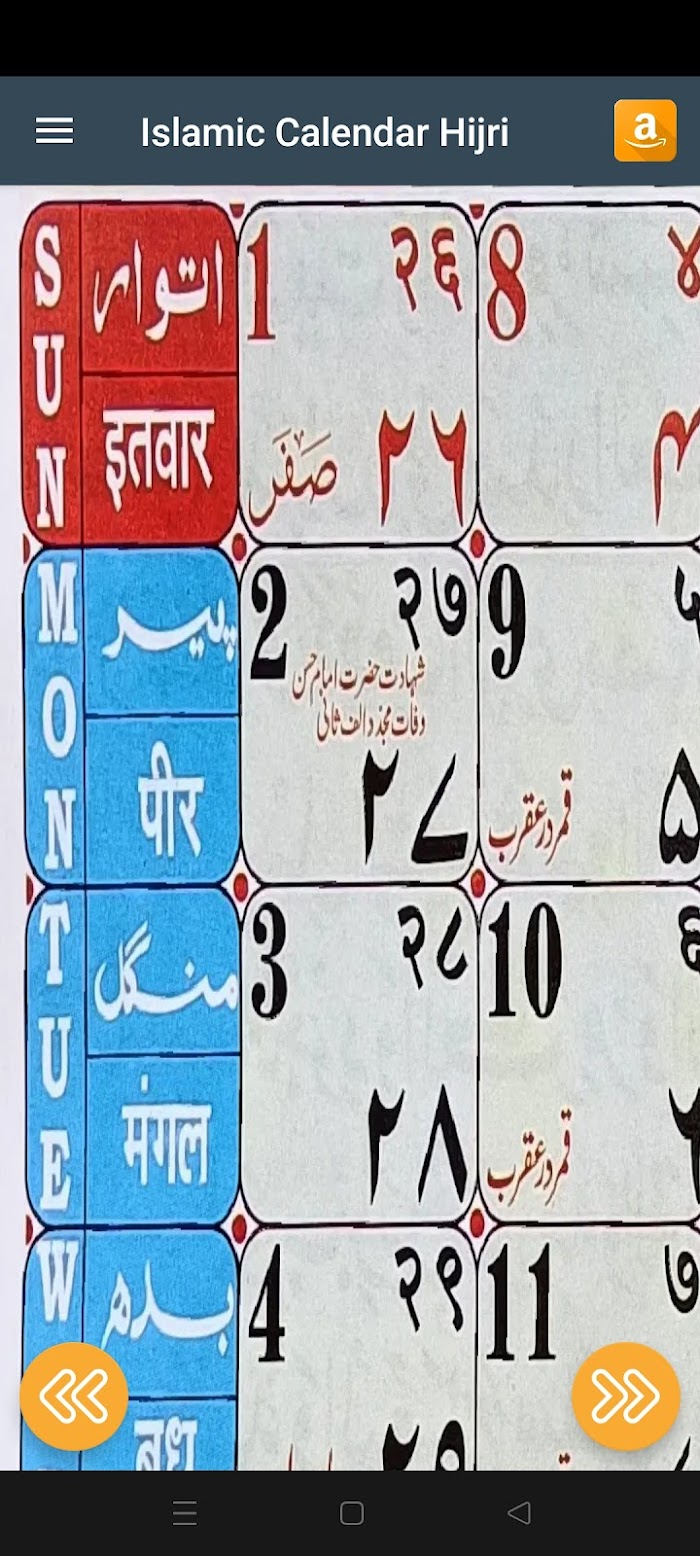 Islamic Calendar Hijri
SUN
اتوار
इतवार
1
२६
صَفَر
۲۶
8
४
MON
پیر
पीर
2
२७
شہادت حضرت امام حسن
وفات مجدد الف ثانی
۲۷
9
قمر در عقرب
۵
TUE
منگل
मंगल
3
२८
۲۸
10
६
قمر در عقرب
W
بدھ
बुध
4
२९
۲۹
11
७